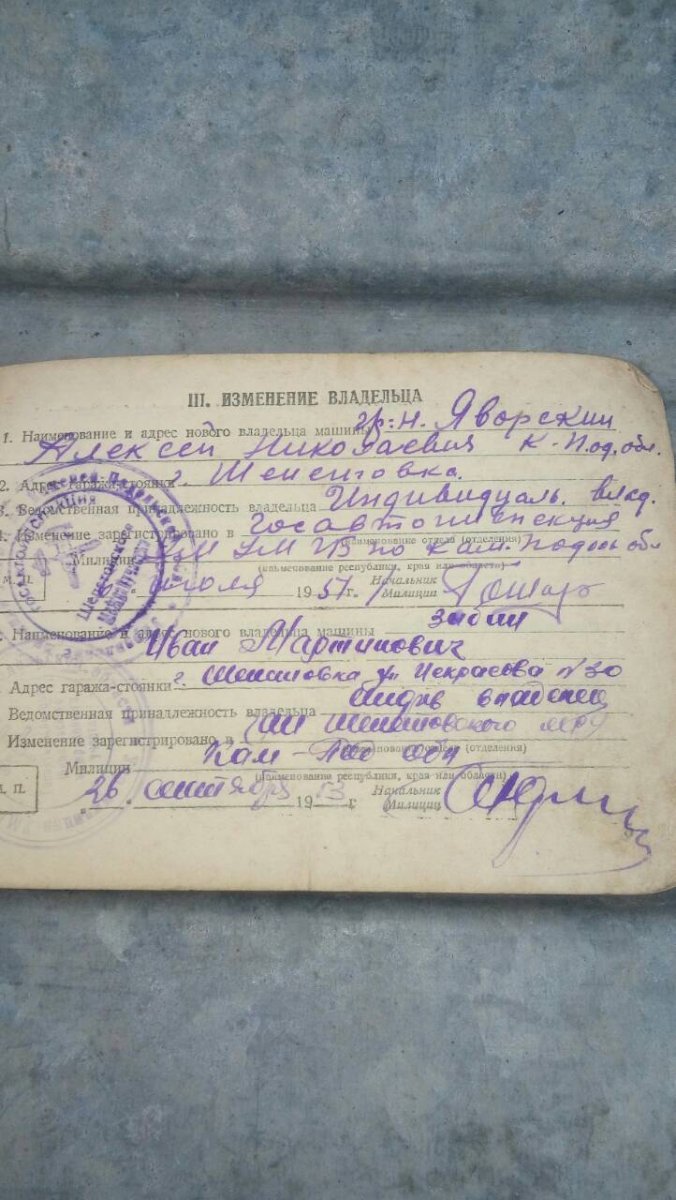 III. ИЗМЕНЕНИЕ ВЛАДЕЛЬЦА
1. Наименование и адрес нового владельца машины гр-н. Яворский
Алексей Николаевич К-Под. обл.
2. Адрес гаража-стоянки г. Шепетовка.
3. Ведомственная принадлежность владельца Индивидуаль. влад.
4. Изменение зарегистрировано в Госавтоинспекция
(наименование отдела (отделения)
Милиции УМ УМГБ по Кам. Подоль обл
(наименование республики, края или области)
М. П.
июля 1951 г. Начальник
Милиции
Наименование и адрес нового владельца машины
Иван Мартинович
Адрес гаража-стоянки г. Шепетовка ул Некрасова №30
Ведомственная принадлежность владельца индив владелец
Изменение зарегистрировано в Шепетовского
(наименование отдела (отделения)
Милиции Кам-Под обл
(наименование республики, края или области)
М. П.
26 сентября 1953 г. Начальник
Милиции